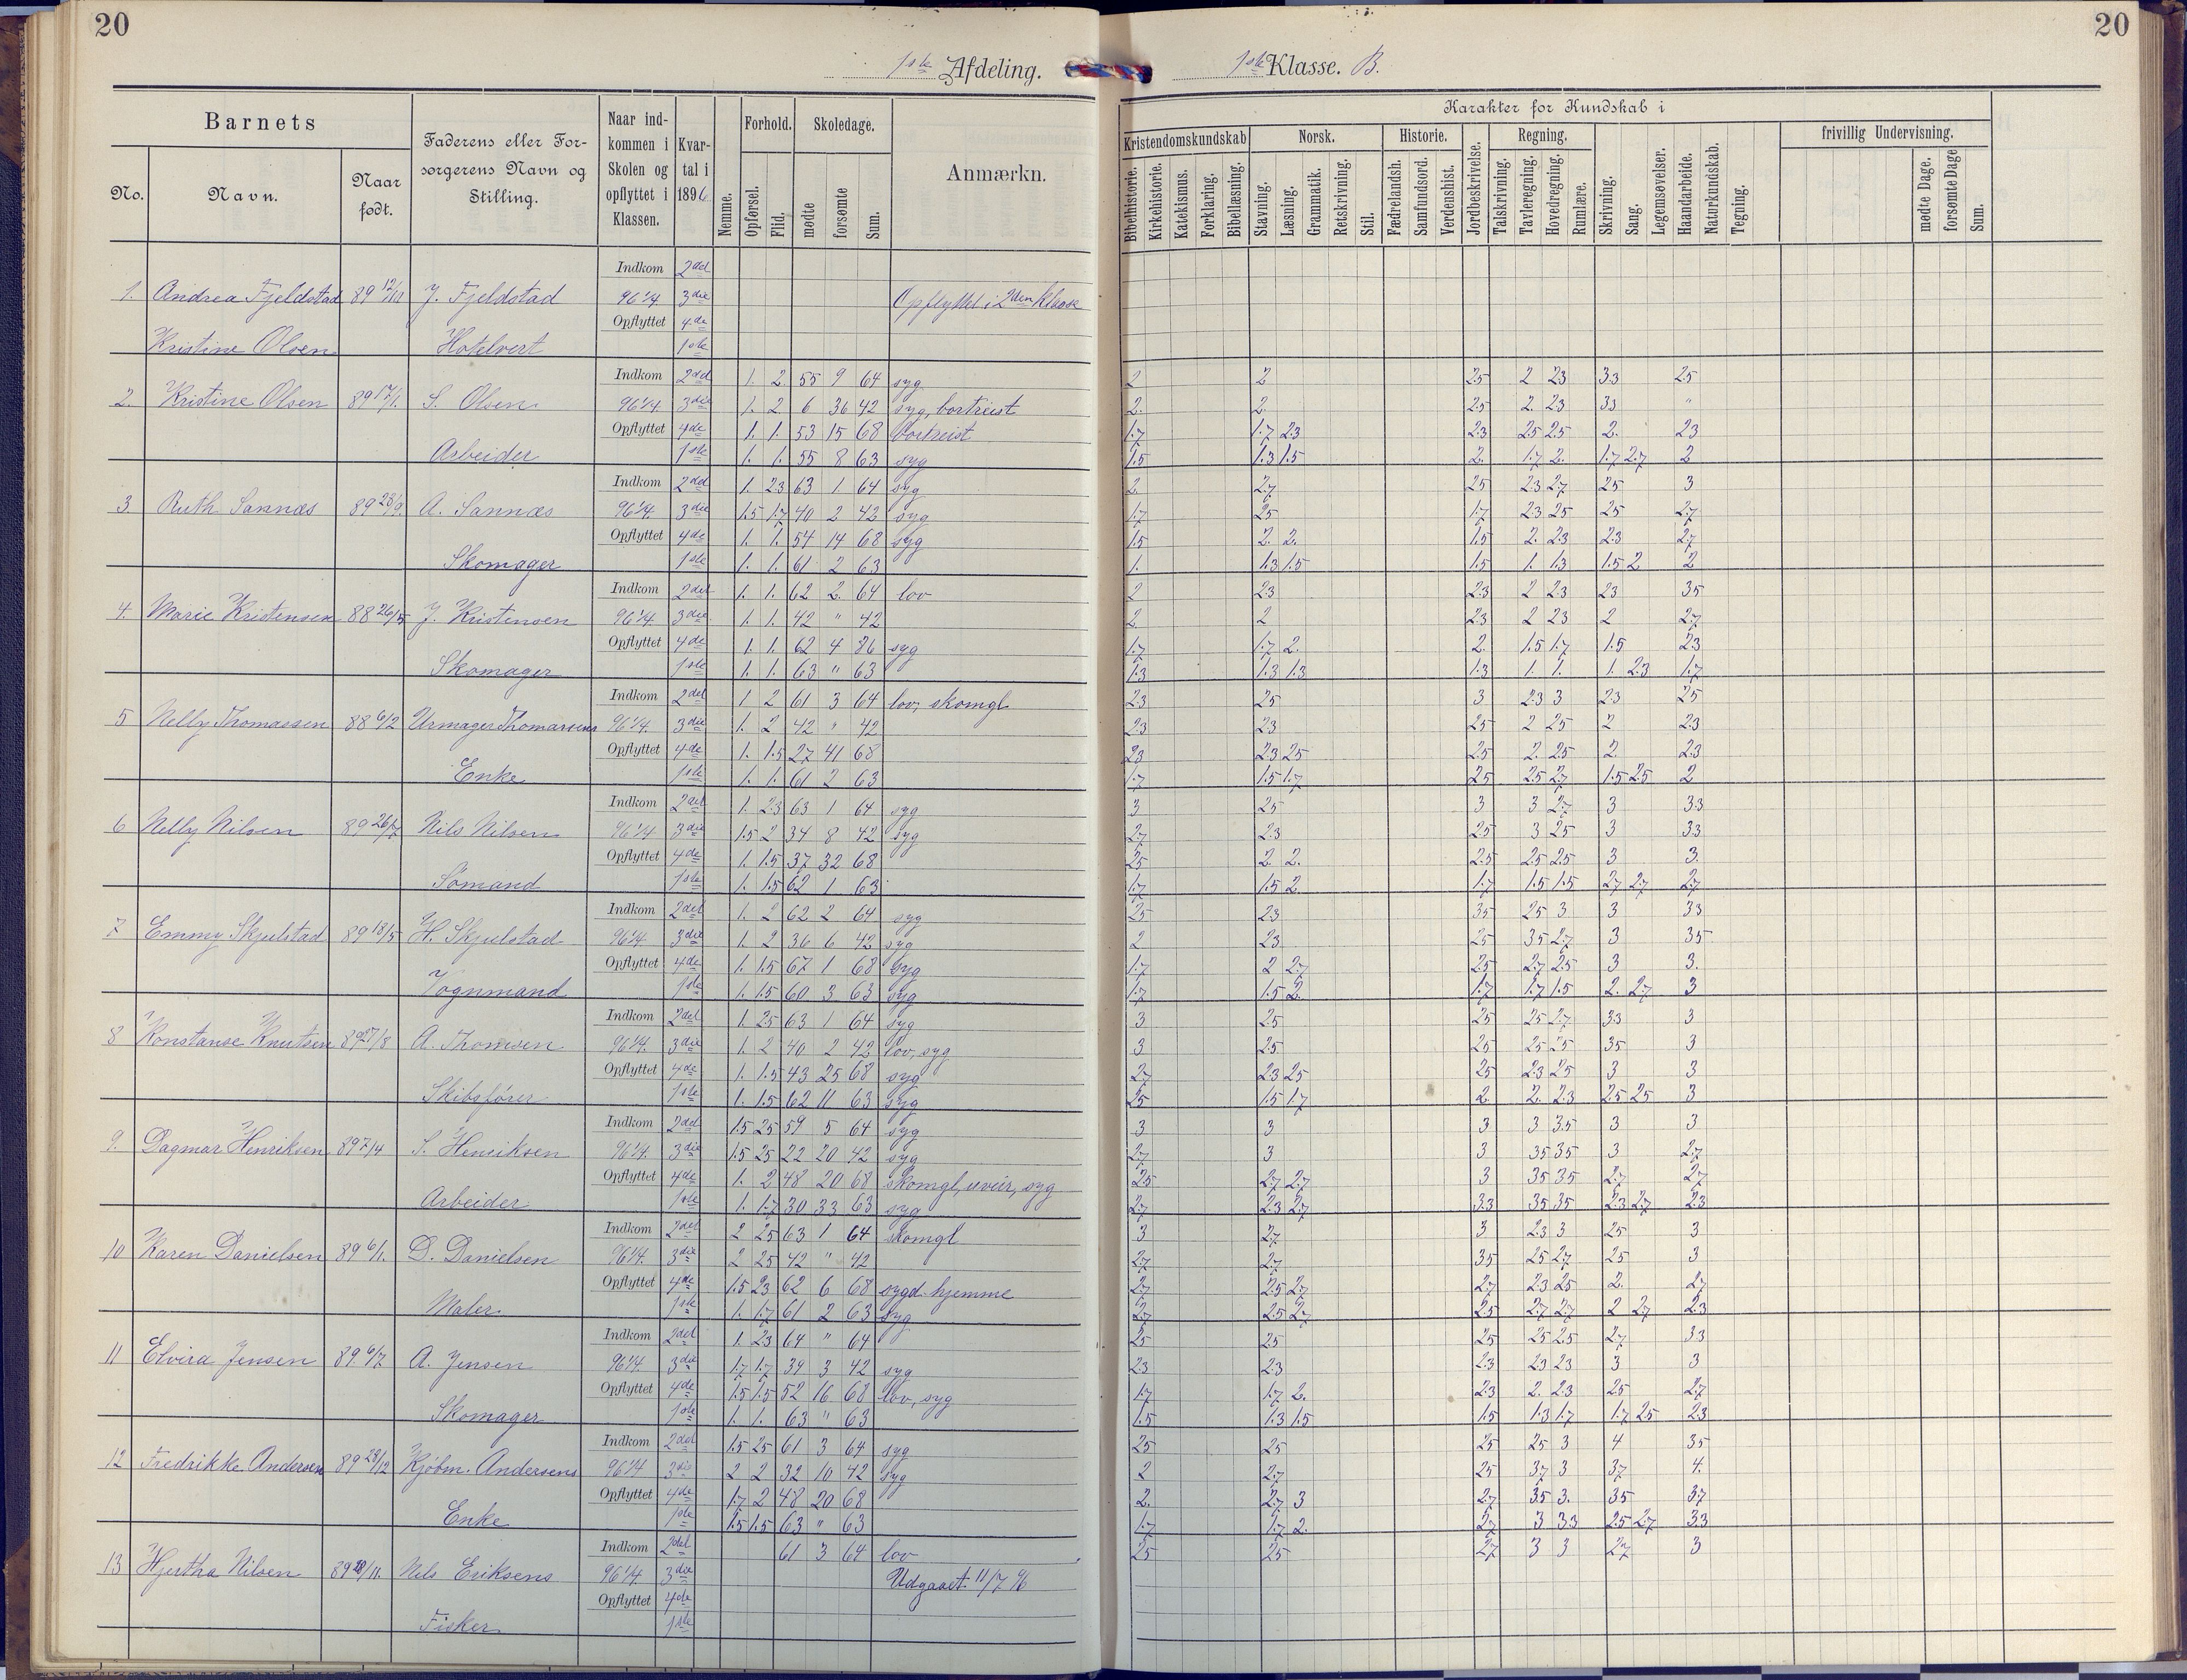 20
20
1ste Afdeling.
1ste Klasse. B.
Barnets
No.
Navn.
Naar født.
Faderens eller Forsørgerens Navn og Stilling.
Naar indkommen i Skolen og opflyttet i Klassen.
Kvartal i 1896
Nemme.
Forhold.
Opførsel.
Flid.
Skoledage.
mødte
forsømte
Sum.
Anmærkn.
Karakter for Kundskab i
Kristendomskundskab
Bibelhistorie.
Kirkehistorie.
Katekismus.
Forklaring.
Bibellæsning.
Norsk.
Stavning.
Læsning.
Grammatik.
Retskrivning.
Stil.
Historie.
Fædrelandsh.
Samfundsord.
Verdenshist.
Jordbeskrivelse.
Regning.
Talskrivning.
Tavleregning.
Hovedregning.
Rumlære.
Skrivning.
Sang.
Legemsøvelser.
Haandarbeide.
Naturkundskab.
Tegning.
frivillig Undervisning.
mødte Dage.
forsømte Dage
Sum.
Indkom 2det
1. Andrea Fjeldstad 89 12/11 J. Fjeldstad 96 1/4 3die Opflyttet i 2den Klasse
Opflyttet 4de
Kristine Olsen Hotelvert 1ste
Indkom 2det 1. 2. 55 9 64 syg 2 2 2.5 2 2.3 3.3 2.5
2. Kristine Olsen 89 17/1. S. Olsen 96 1/4 3die 1. 2. 6 36 42 syg, bortreist 2. 2. 2.5 2. 2.3 3.3 "
Opflyttet 4de 1. 1. 53 15 68 bortreist 1.7 1.7 2.3 2.3 2.5 2.5 2. 2.3
Arbeider 1ste 1. 1. 55 8 63 syg 1.5 1.3 1.5 2. 1.7 2. 1.7 2.7 2
Indkom 2det 1. 2.3 63 1. 64 syg 2. 2.7 2.5 2.3 2.7 2.5 3
3. Ruth Sannæs 89 28/9. A. Sannæs 96 1/4. 3die 1.5 1.7 40 2 42 syg 1.7 2.5 1.7 2.3 2.5 2.5 2.7
Opflyttet 4de 1. 1. 54 14 68 syg 1.5 2. 2. 1.5 2. 2.3 2.3 2.7
Skomager 1ste 1. 1. 61 2 63 1. 1.3 1.5 1.5 1. 1.3 1.5 2 2
Indkom 2det 1. 1. 62 2. 64 lov 2 2.3 2.3 2 2.3 2.3 3.5
4. Marie Kristensen 88 26/5 J. Kristensen 96 1/4. 3die 1. 1. 42 " 42 2. 2 2.3 2 2.3 2 2.7
Opflyttet 4de 1. 1. 62 4 26 syg 1.7 1.7 2. 2. 1.5 1.7 1.5 2.3
Skomager 1ste 1. 1. 63 " 63 1.3 1.3 1.3 1.3 1. 1. 1. 2.3 1.7
Indkom 2det 1 2 61 3 64 lov, skomgl 2.3 2.5 3 2.3 3 2.3 2.5
5 Nelly Thomassen 88 6/2 Urmager Thomassens 96 1/4. 3die 1. 2 42 " 42 2.3 2.3 2.5 2 2.5 2 2.3
Opflyttet 4de 1. 1.5 27 41 68 2.3 2.3 2.5 2.5 2. 2.5 2. 2.3
Enke 1ste 1. 1. 61 2 63 1.7 1.5 1.7 2.5 2.5 2.7 1.5 2.5 2
Indkom 2det 1. 2.3 63 1 64 syg 3 2.5 3 3 2.7 3 3.3
6 Nelly Nilsen 89 26/7 Nils Nilsen 96 1/4 3die 1.5 2 34 8 42 syg 2.7 2.3 2.5 3 2.5 3 3.3
Opflyttet 4de 1. 1.5 37 32 68 2.5 2. 2. 2.5 2.5 2.5 3 3.
Sømand 1ste 1. 1.5 62 1 63 1.7 1.5 2. 1.7 1.5 1.5 2.7 2.7 2.7
Indkom 2det 1. 2 62 2 64 syg 2.5 2.3 3.5 2.5 3 3 3.3
7 Emmy Skjulstad 89 18/5 H. Skjulstad 96 1/4 3die 1. 2 36 6 42 syg 2 2.3 2.5 3.5 2.7 3 3.5
Opflyttet 4de 1. 1.5 67 1 68 syg 1.7 2 2.7 2.5 2.7 2.5 3 3.
Vognmand 1ste 1. 1.5 60 3 63 syg 1.7 1.5 2. 1.7 1.7 1.5 2. 2.7 3
Indkom 2det 1. 2.5 63 1 64 syg 3 2.5 2.5 2.5 2.7. 3.3 3
8 Konstanse Knutsen 89 27/8 A. Thomsen 96 1/4. 3die 1. 2 40 2 42 lov, syg 3 2.5 2.5 2.5 2.5 3.5 3
Opflyttet 4de 1. 1.5 43 25 68 syg 2.7 2.3 2.5 2.5 2.3 2.5 3 3
Skibsfører 1ste 1. 1.5 62 11 63 syg 2.5 1.5 1.7 2. 2. 2.3 2.5 2.5 3
Indkom 2det 1.5 2.5 59 5 64 syg 3 3 3 3 3.5 3 3
9. Dagmar Henriksen 89 7/4 S. Henriksen 96 1/4. 3die 1.5 2.5 22 20 42 syg 2.7 3 3 3.5 3.5 3 2.7
Opflyttet 4de 1. 2 48 20 68 skomgl, uveir, syg 2.5 2.7 2.7 3 3.5 3.5 2.7 2.7
Arbeider 1ste 1. 1.7 30 33 63 syg 2.7 2.3 2.7 3.3 3.5 3.5 2.3 2.7 2.3
Indkom 2det 2 2.5 63 1 64 skomgl 3 2.7 3 2.3 3 2.5 3
10 Karen Danielsen 89 6/1. D. Danielsen 96 1/4. 3die 2 2.5 42 " 42 2.7 2.7 3.5 2.5 2.7 2.5 3
Opflyttet 4de 1.5 2.3 62 6 68 sygd. hjemme 2.7 2.5 2.7 2.7 2.3 2.5 2. 2.7
Maler 1ste 1. 1.7 61 2 63 syg 2.7 2.5 2.7 2.5 2.7 2.7 2 2.7 2.3
Indkom 2det 1. 2.3 64 " 64 2.5 2.5 2.5 2.5 2.5 2.7 3.3
11 Elvira Jensen 89 6/7 A. Jensen 96 1/4. 3die 1.7 1.7 39 3 42 syg 2.3 2.3 2.3 2.3 2.3 3 3
Opflyttet 4de 1.5 1.5 52 16 68 lov, syg 1.7 1.7 2. 2.3 2. 2.3 2.5 2.7
Skomager 1ste 1. 1. 63 " 63 1.5 1.3 1.5 1.5 1.3 1.7 1.7 2.5 2.3
Indkom 2det 1.5 2.5 61 3 64 syg 2.5 2.5 2.5 2.5 3 4 3.5
12 Fredrikke Andersen 89 28/12 Kjøbm. Andersens 96 1/4 3die 2 2 32 10 42 syg 2 2.7 2.5 3.7 3 3.7 4.
Opflyttet 4de 1.7 2 48 20 68 2. 2.7 3 2.7 3.5 3. 3.5 3.7
Enke 1ste 1.5 1.5 63 " 63 1.7 1.7 2. 2.7 3 3.3 2.5 2.7 3.3
Indkom 2det 61 3 64 lov 2.5 2.5 2.7 3 3 2.7 3
13 Hjertha Nilsen 89 20/11. Nels Eriksens 96 1/4. 3die Udgaaet 11/7 96
Opflyttet 4de
Fisker 1ste